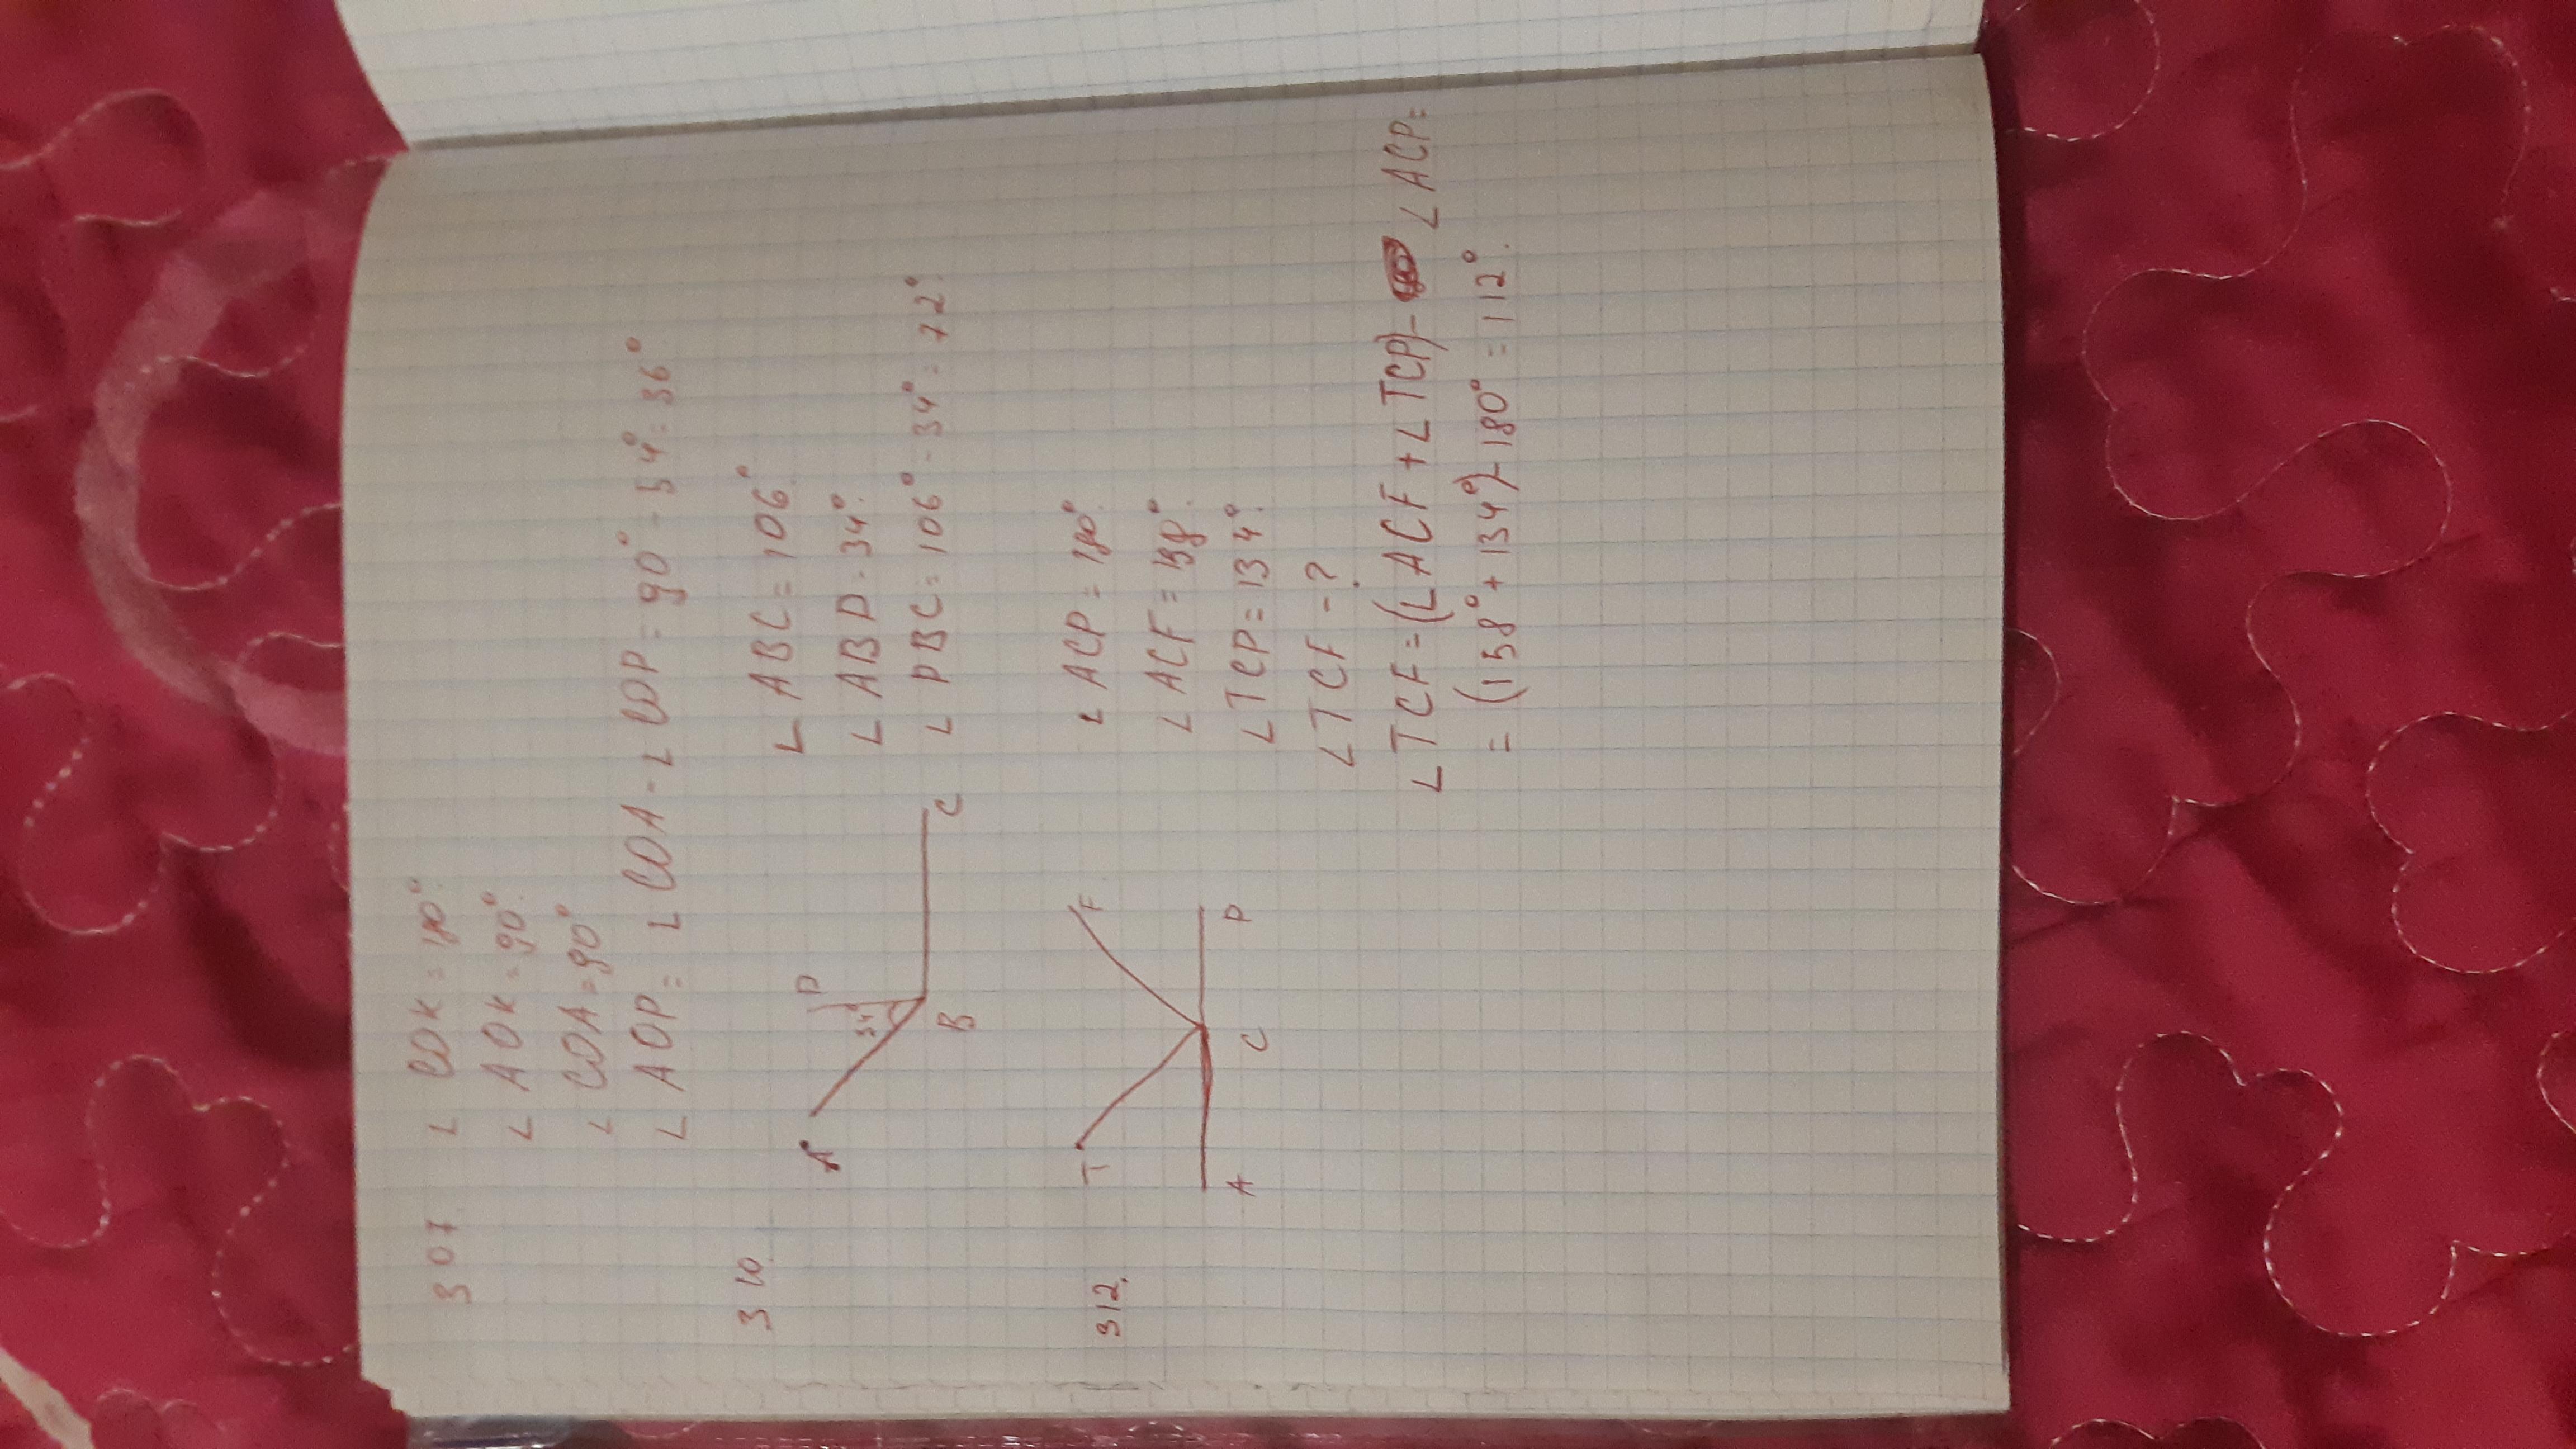 307.
∠ COK = 180°.
∠ AOK = 90°.
∠ COA = 90°
∠ AOP = ∠ COA - ∠ COP = 90° - 54° = 36°
310.
A
D
34°
B
C
∠ ABC = 106°.
∠ ABD = 34°.
∠ DBC = 106° - 34° = 72°.
312.
T
F
A
C
P
∠ ACP = 180°.
∠ ACF = 158°.
∠ TCP = 134°.
∠ TCF - ?
∠ TCF = (∠ ACF + ∠ TCP) - ∠ ACP =
= (158° + 134°) - 180° = 112°.